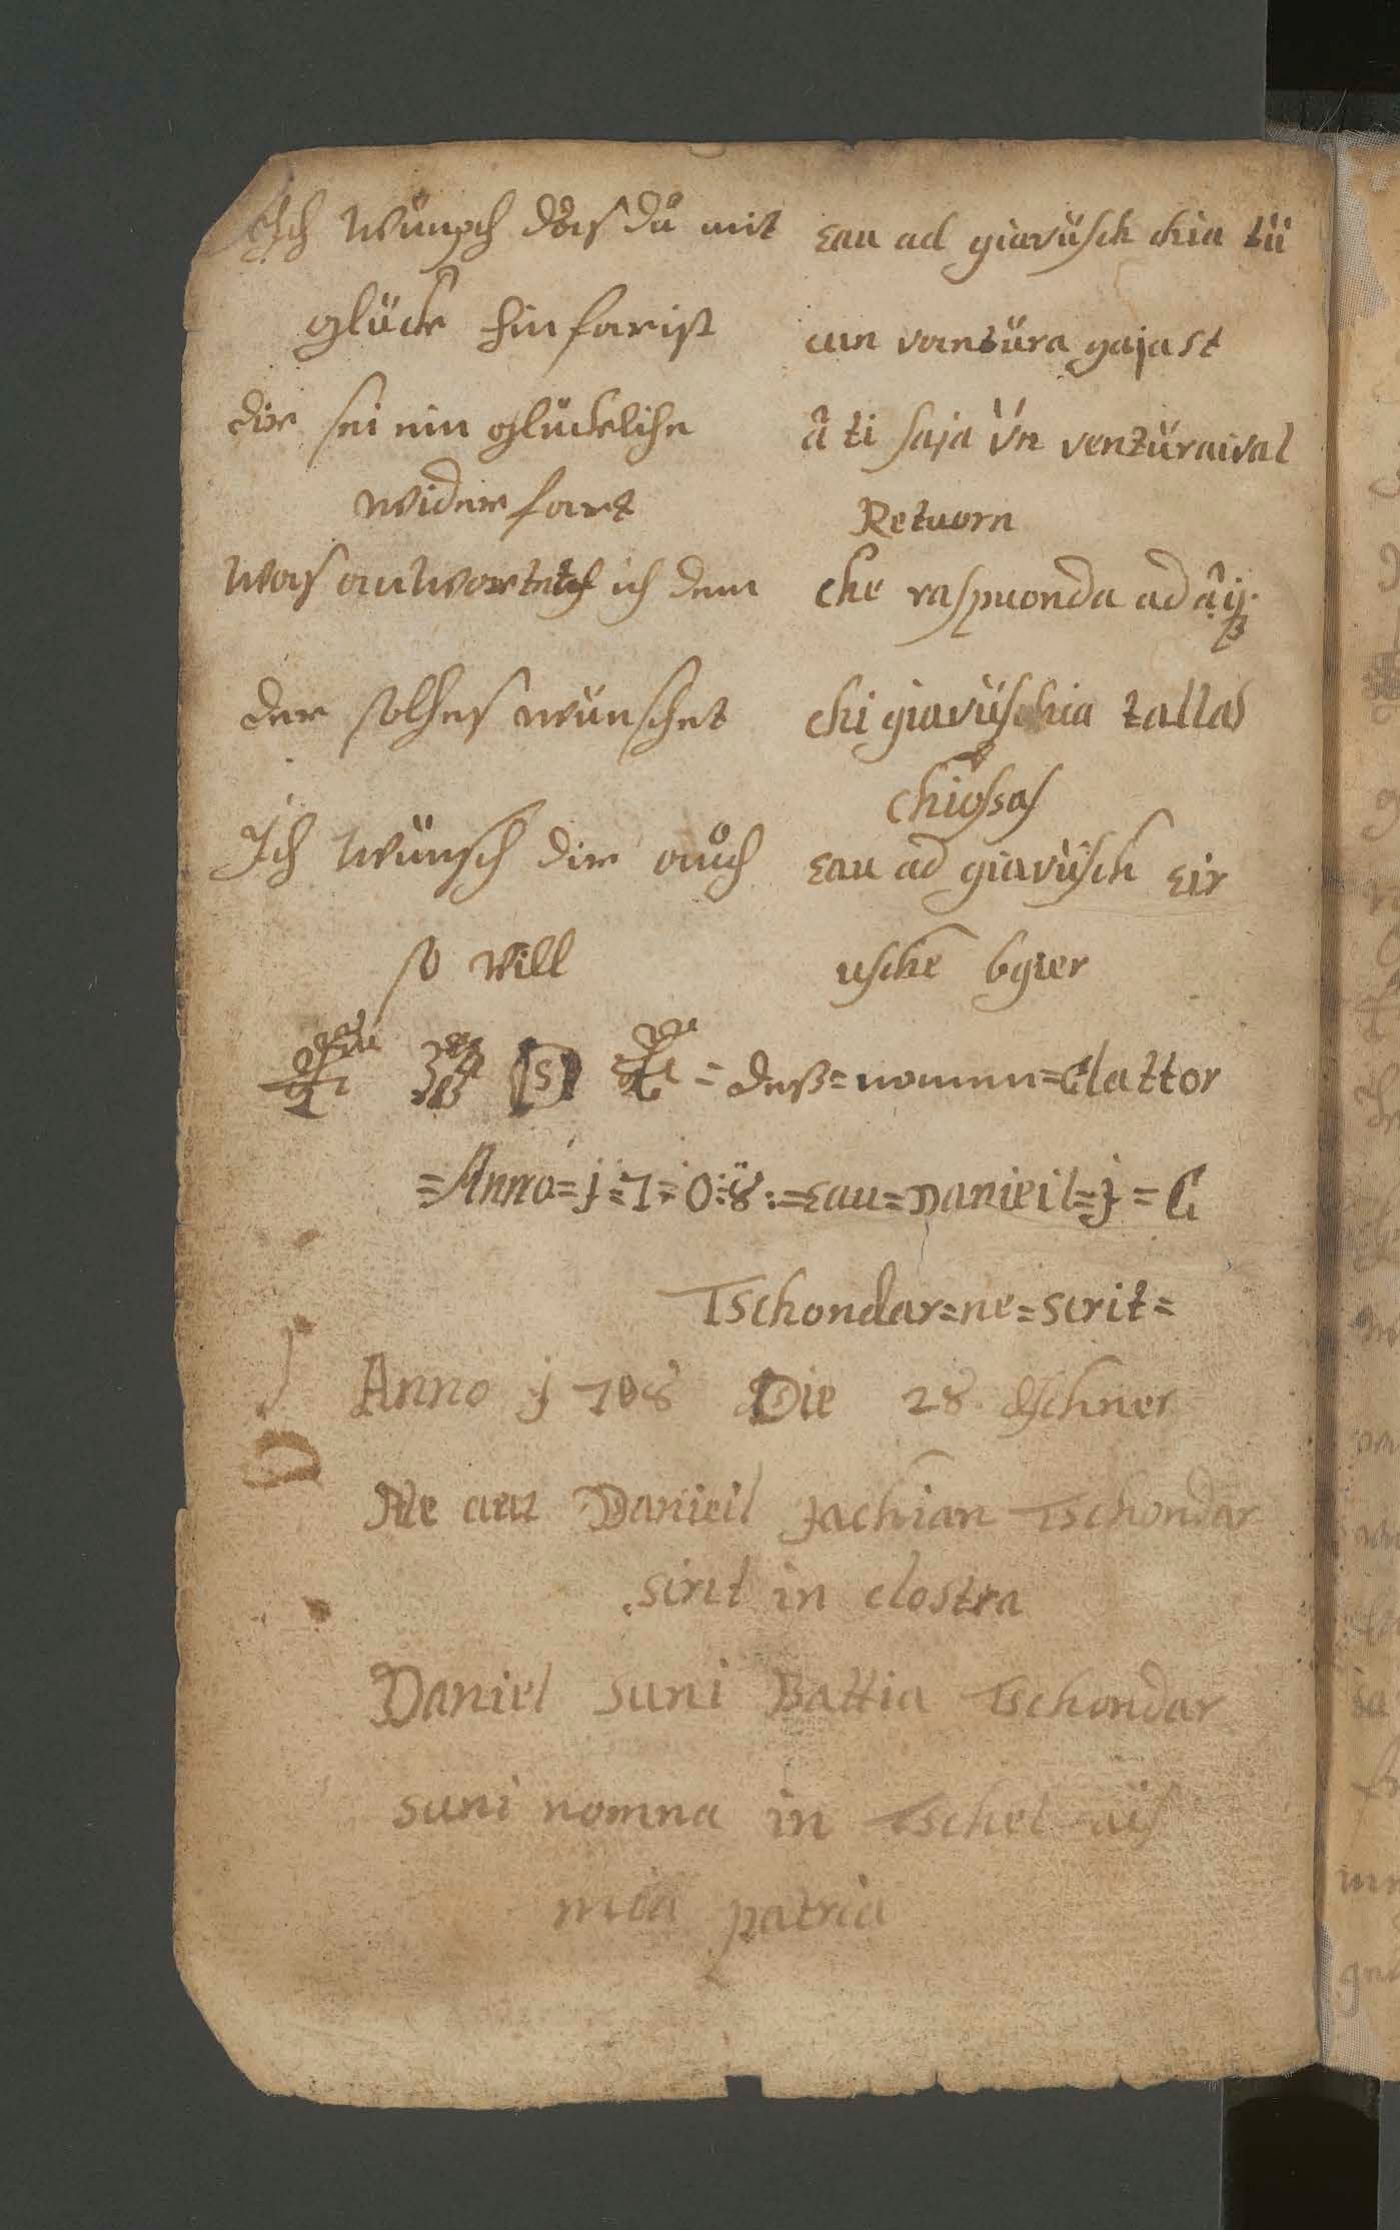 Ich wünsch das du mit eau ad giavüsch chia tü
glück hinfarist cun vantüra gajast
dir sei ein glücklihe â ti saja ün ventüraival
widerfart Retuorn
Was antwortet ich dem che raspuonda ad âij
der solhes wünschet chi giavüschia tallas
chiossas
Ich wünsch dir auch eau ad giavüsch eir
so will uschē bgier
= deß = nomen = Clattor
= Anno = j = 7 = 0 = 8 : = eau = Danieil = J = C
Tschondar = ne = scrit =
Anno j 708 Die 28 dschner
Ne eau Danieil Jachian Tschondar
scrit in clostra
Daniel suni Battia Tschondar
suni nomna in Tschel ais
mia patria